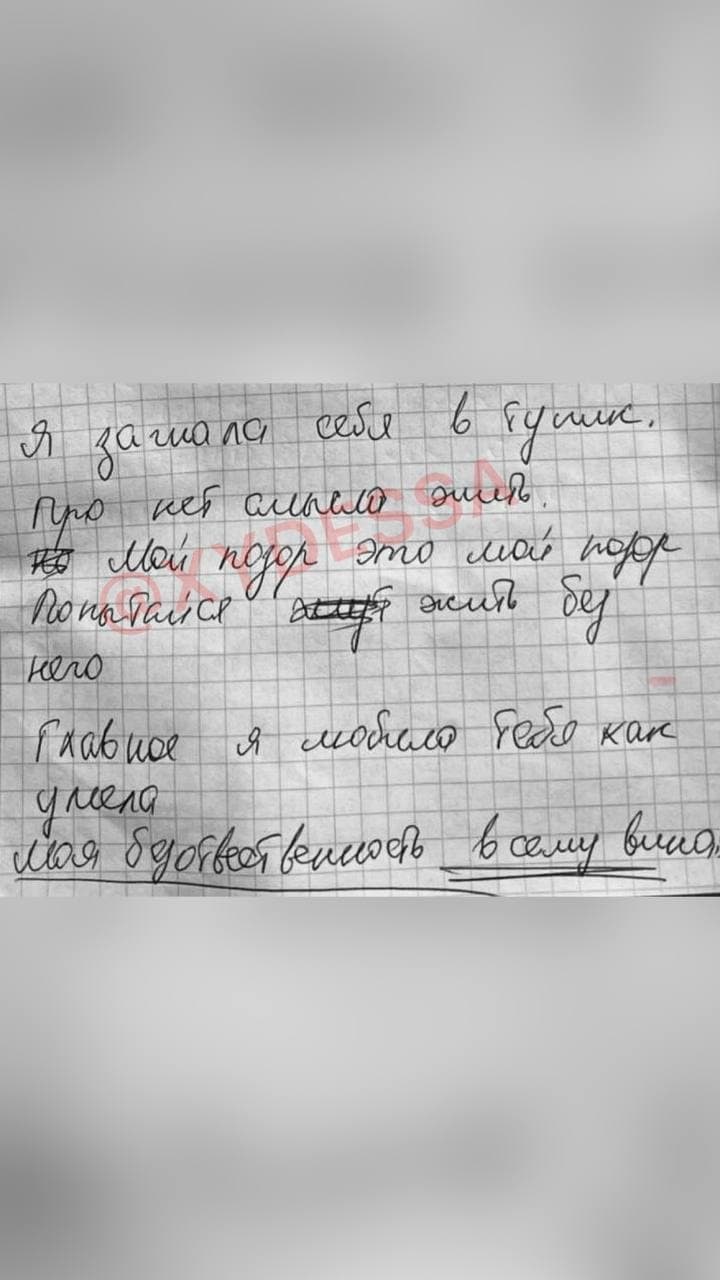 Я загнала себя в тупик.
нет смысла жить.
Мой позор это мой позор
Попытайся жить без
него
Главное я любила тебя как
умела
Моя безответственность всему вина.
@XYDESSA